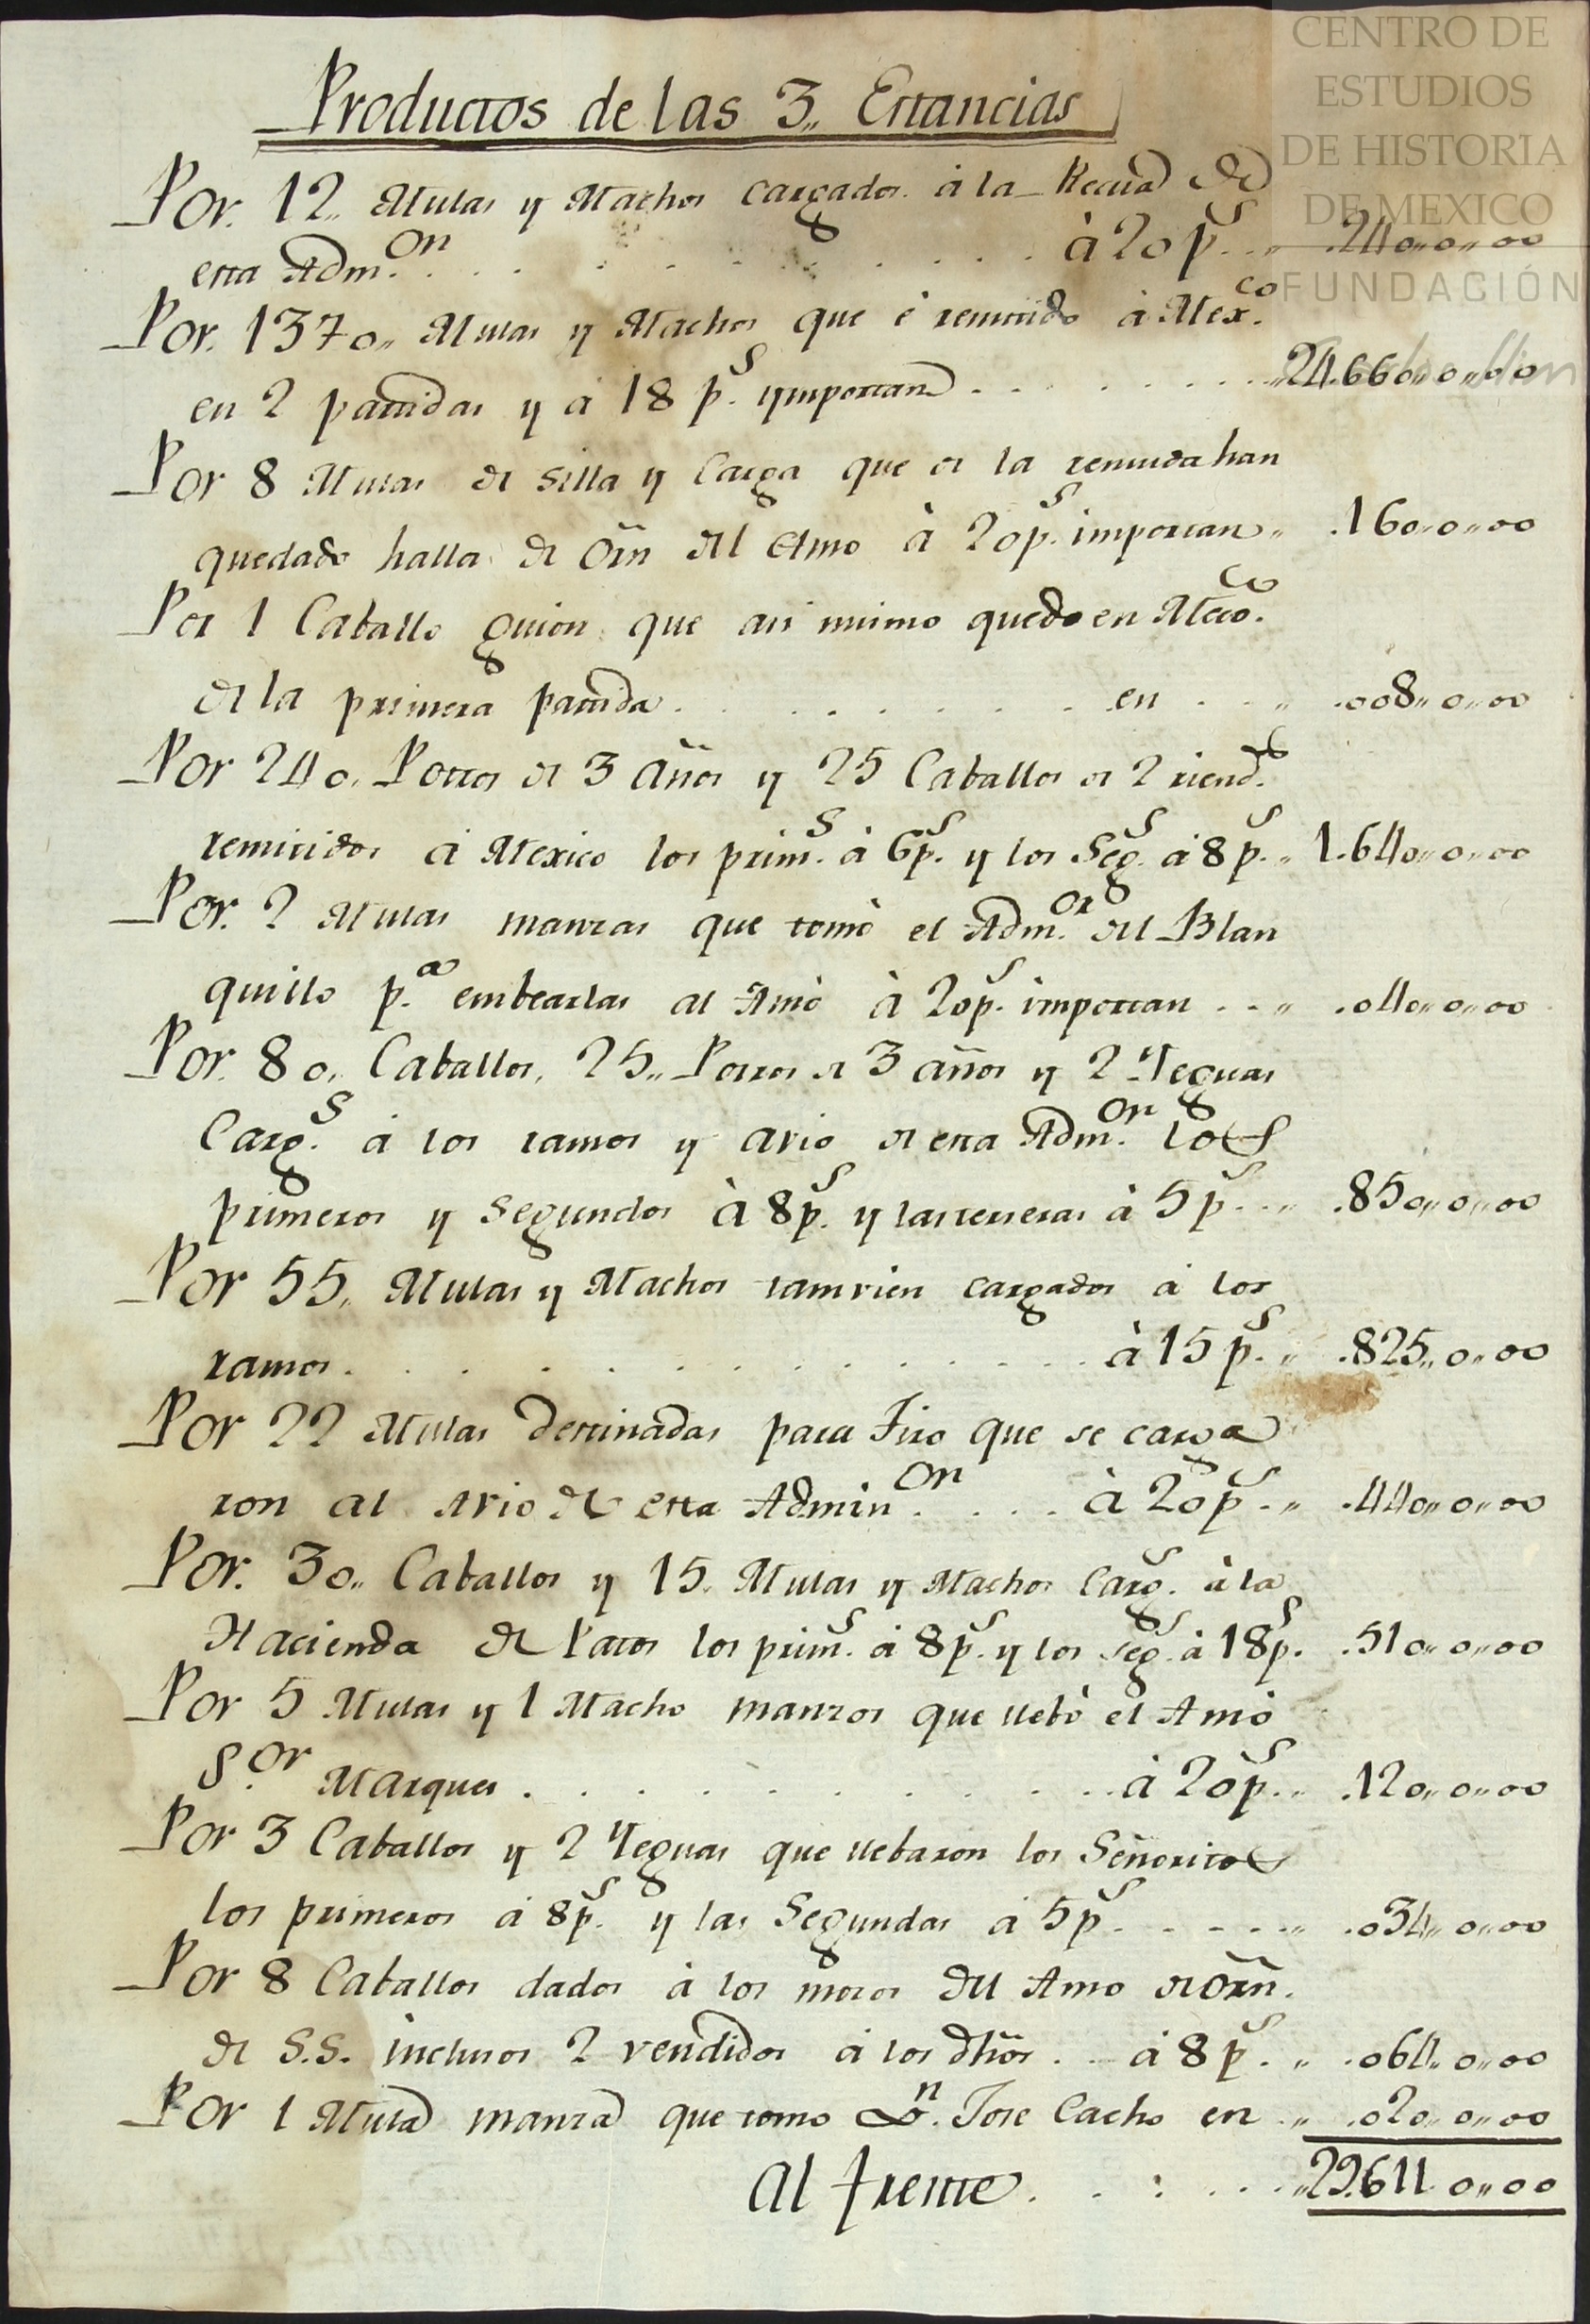 CENTRO DE
ESTUDIOS
DE HISTORIA
DE MEXICO
FUNDACIÓN
Productos de las 3,, Estancias
Por. 12,, Mulas y Machos cargados à la Recua de
esta Adm.on . . . . . . . . . . à 20 p.s . . ,, .240,,0,,00
Por. 1370,, Mulas y Machos que è remitido à Mex.co
en 2 partidas y à 18 p.s ymportan . . . . . . . . ,,24.660,,0,,00
Por 8 Mulas de silla y Carga que de la remuda han
quedado halla de Orn del Amo à 20 p.s importan ,, .160,,0,,00
Por 1 Caballo guion que asi mismo quedo en Mexco.
de la primera partida . . . . . . . . . en . . ,, .008,,0,,00
Por 240,, Potros de 3 Años y 25 Caballos de 2 riend.s
remitidos à Mexico los prim.s à 6 p.s y los Seg.s à 8 p.s ,, 1.640,,0,,00
Por. 2 Mulas manzas que tomò el Adm.or del Blan
quillo p.a embearlas al Amò à 20 p.s importan . . ,, .040,,0,,00
Por. 80,, Caballos, 25,, Potros de 3 años y 2 Yeguas
Carg.s à los ramos y avio de esta Adm.on los
primeros y Segundos à 8 p.s y las terseras à 5 p.s . . ,, .850,,0,,00
Por 55,, Mulas y Machos tamvien cargados à los
ramos . . . . . . . . . . . . à 15 p.s ,, .825,,0,,00
Por 22 Mulas destinadas para Tiro que se carga
ron al Avio de esta Admin.on . . . à 20 p.s ,, .440,,0,,00
Por. 30,, Caballos y 15,, Mulas y Machos Carg.s à la
Hacienda de Patos los prim.s à 8 p.s y los seg.s à 18 p.s .510,,0,,00
Por 5 Mulas y 1 Macho manzos que llebò el Amò
S.or Marques . . . . . . . . . . à 20 p.s ,, .120,,0,,00
Por 3 Caballos y 2 Yeguas que llebaron los Señoritos
los primeros à 8 p.s y las Segundas à 5 p.s . . . . . ,, .034,,0,,00
Por 8 Caballos dados à los mosos del Amo de orn.
de S.S. inclusos 2 vendidos à los dhos . . à 8 p.s ,, .064,,0,,00
Por 1 Mula manza que tomo Dn. Jose Cacho en ,, .020,,0,,00
Al frente . . : . . . ,,29.611,,0,,00